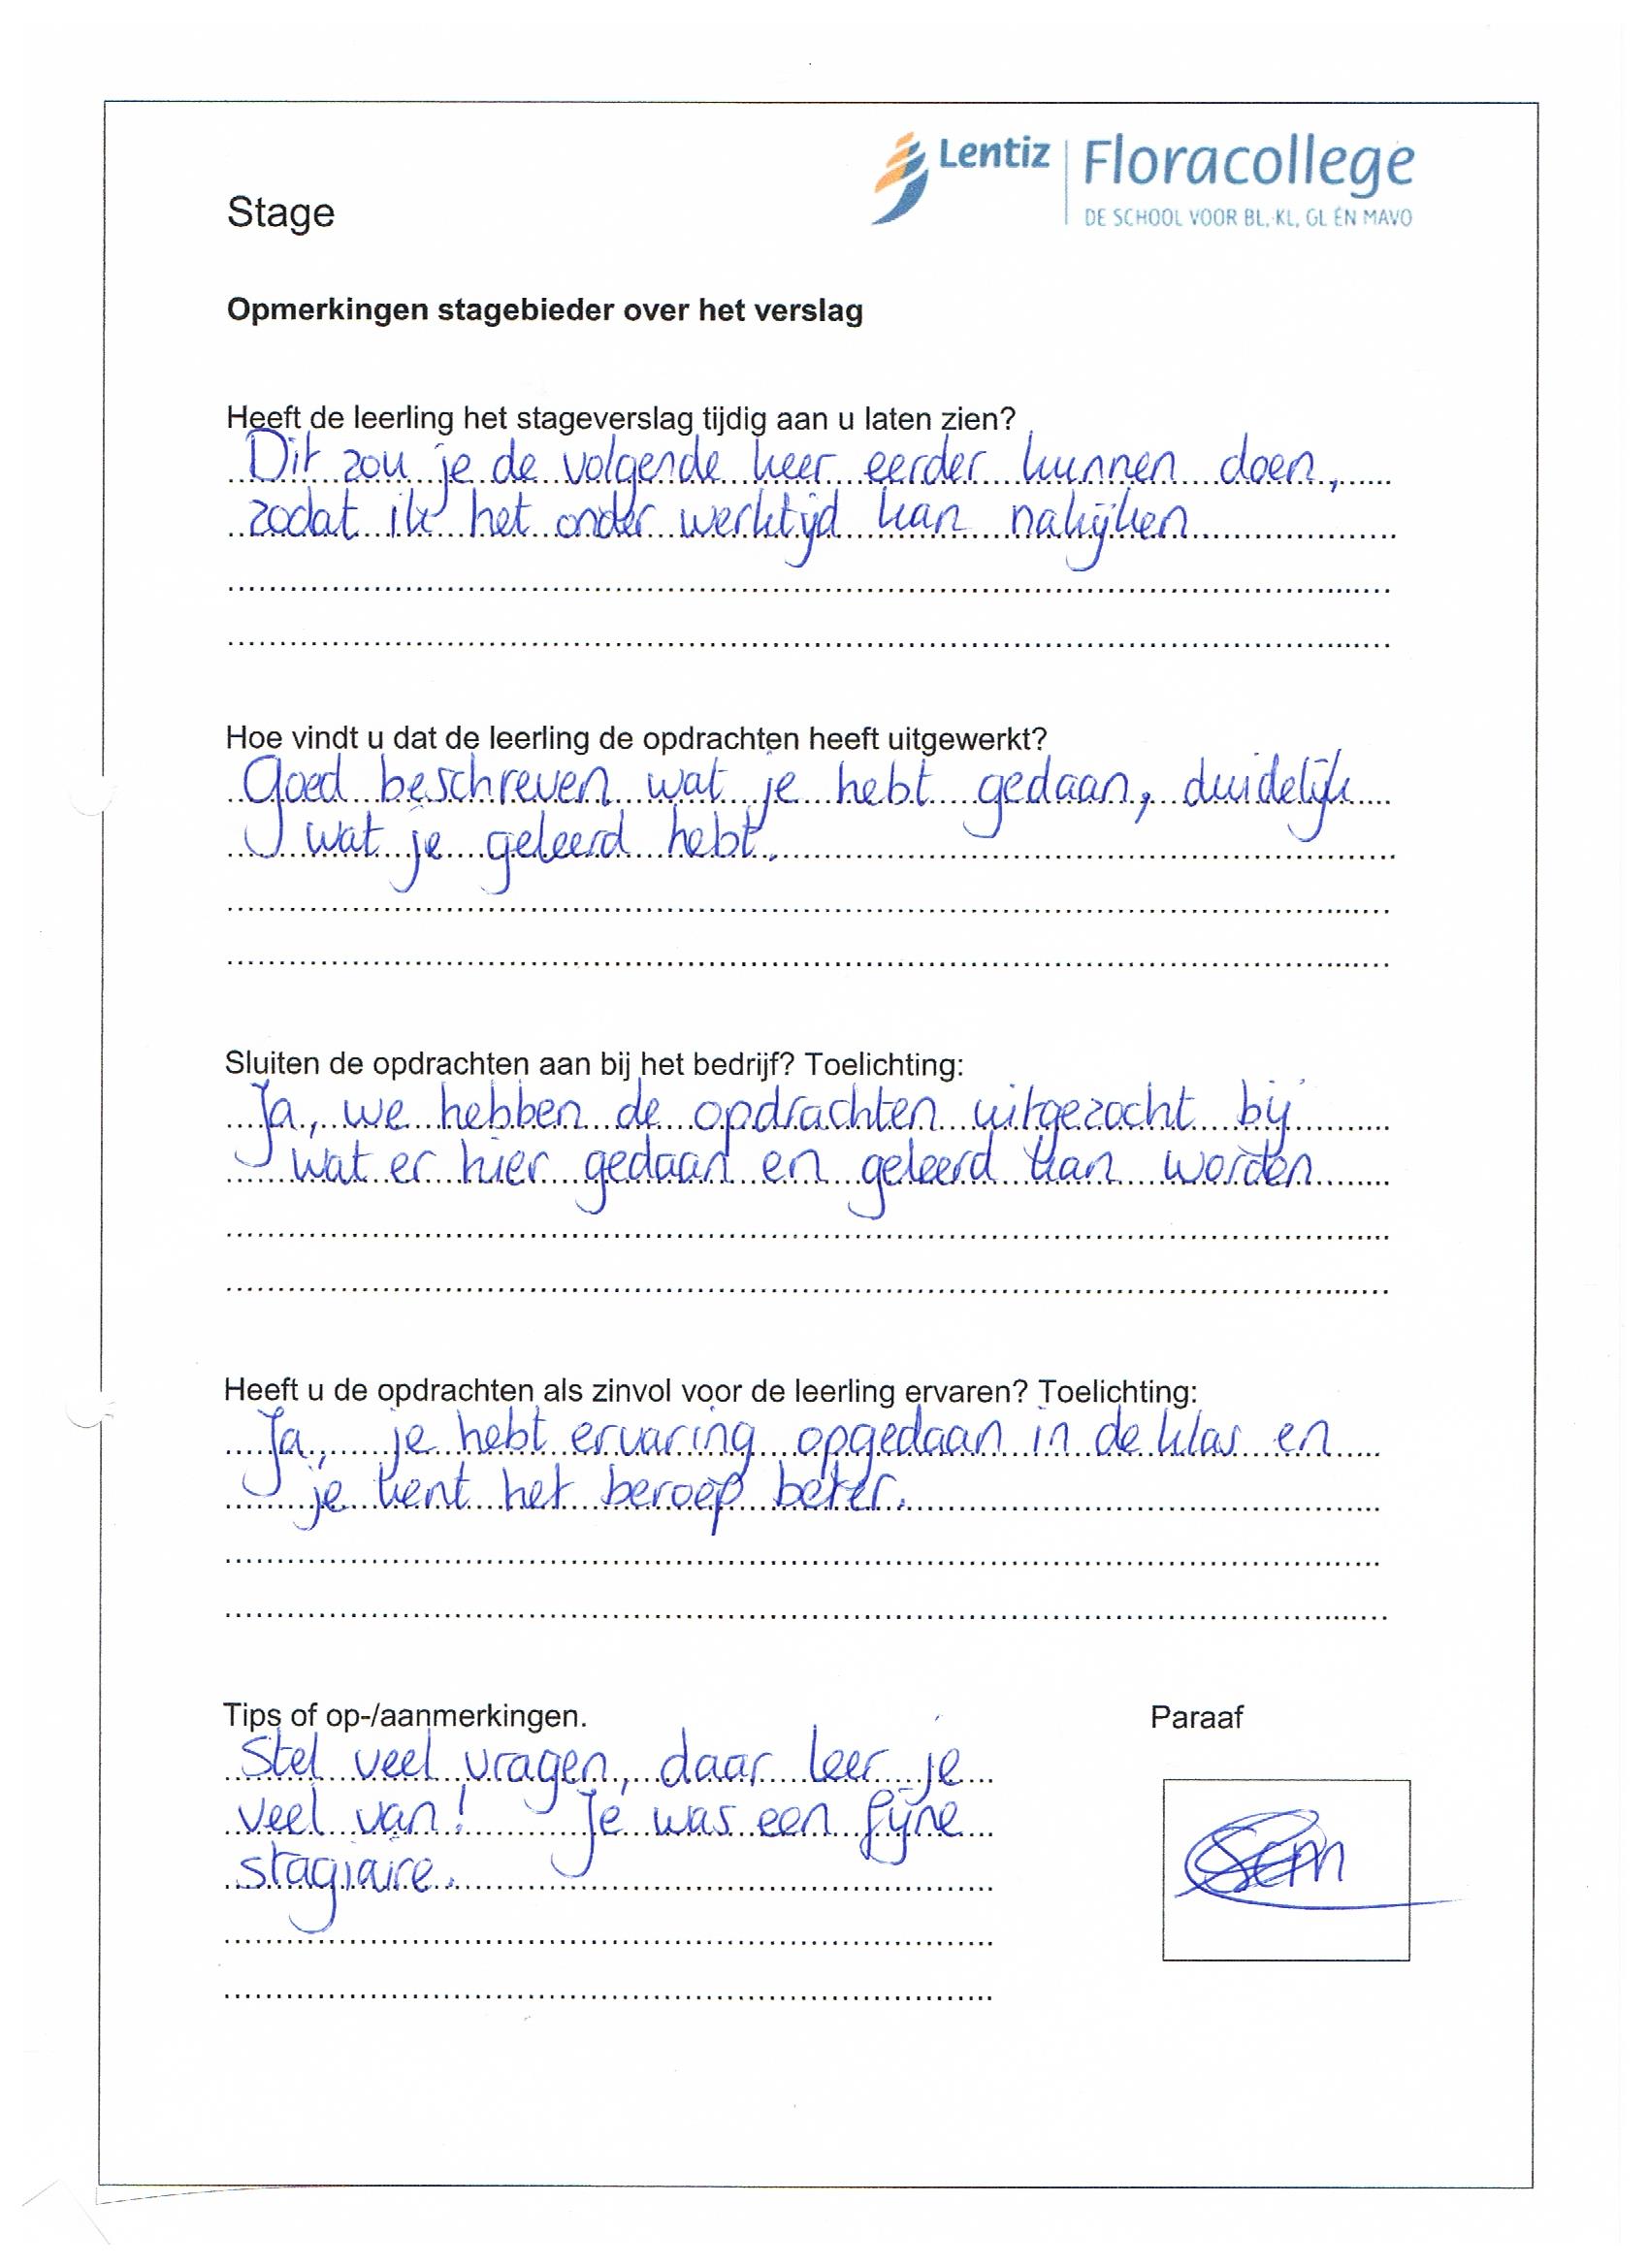 Lentiz
Floracollege
DE SCHOOL VOOR BL, KL, GL ÉN MAVO
Stage
Opmerkingen stagebieder over het verslag
Heeft de leerling het stageverslag tijdig aan u laten zien?
Dit zou je de volgende keer eerder kunnen doen,
zodat ik het onder werktijd kan nakijken
Hoe vindt u dat de leerling de opdrachten heeft uitgewerkt?
Goed beschreven wat je hebt gedaan, duidelijk
wat je geleerd hebt.
Sluiten de opdrachten aan bij het bedrijf? Toelichting:
Ja, we hebben de opdrachten uitgezocht bij
wat er hier gedaan en geleerd kan worden
Heeft u de opdrachten als zinvol voor de leerling ervaren? Toelichting:
Ja, je hebt ervaring opgedaan in de klas en
je kent het beroep beter.
Tips of op-/aanmerkingen.
Paraaf
Stel veel vragen, daar leer je
veel van! Je was een fijne
stagiaire.